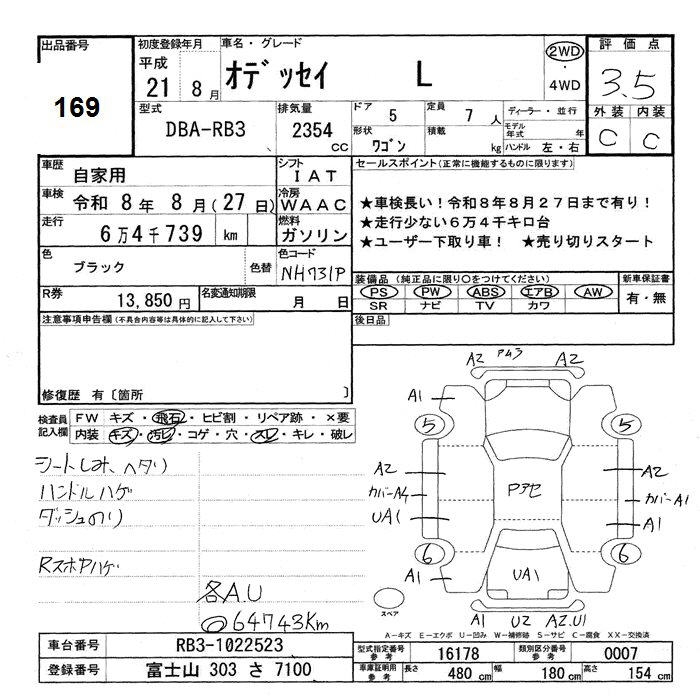 出品番号
169
初度登録年月
平成
21 8月
車名・グレード
オデッセイ L
2WD
・
4WD
評価点
3.5
外装 内装
C C
型式
DBA-RB3
排気量
2354
cc
ドア 5
定員 7 人
形状 ワゴン
積載 kg
ディーラー・並行
モデル年式 年
ハンドル 左・右
車歴
自家用
シフト
IAT
車検
令和 8年 8月(27日)
冷房
WAAC
走行
6万4千739 km
燃料
ガソリン
色
ブラック
色替
色コード
NH731P
R券
13,850円
名変通知期限
月 日
セールスポイント(正常に機能するものに限ります)
★車検長い!令和8年8月27日まで有り!
★走行少ない6万4千キロ台
★ユーザー下取り車! ★売り切りスタート
装備品(純正品に限り○をつけてください)
PS PW ABS エアB AW
SR ナビ TV カワ
新車保証書
有・無
後日品
注意事項申告欄(不具合内容等は具体的に記入して下さい)
修復歴 有〔箇所 〕
検査員
記入欄
FW キズ・飛石・ヒビ割・リペア跡・×要
内装 キズ・汚レ・コゲ・穴・スレ・キレ・破レ
シートしみ、ヘタリ
ハンドルハゲ
ダッシュのり
RスポPハゲ
各A.U
◎64743Km
A2 A2
A1
5 5
A2 A2
カバーA4 カバーA1
UA1 A1
Pアセ
6 6
A1 UA1 A1
スペア
A1 U2 A2.U1
A-キズ E-エクボ U-凹み W-補修跡 S-サビ C-腐食 XX-交換済
車台番号 RB3-1022523
登録番号 富士山 303 さ 7100
型式指定番号
参考
16178
類別区分番号
参考
0007
車庫証明用
参考
長さ 480 cm 幅 180 cm 高さ 154 cm